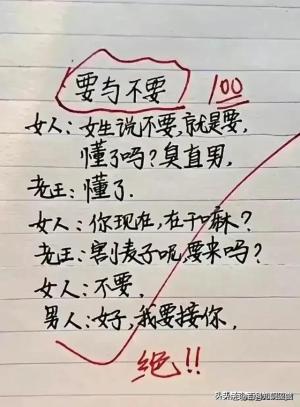 要与不要
100
女人:女生说不要,就是要,
懂了吗?臭直男,
老王:懂了.
女人:你现在,在干嘛?
老王:割麦子呢,要来吗?
女人:不要,
男人:好,我要接你,
绝!!